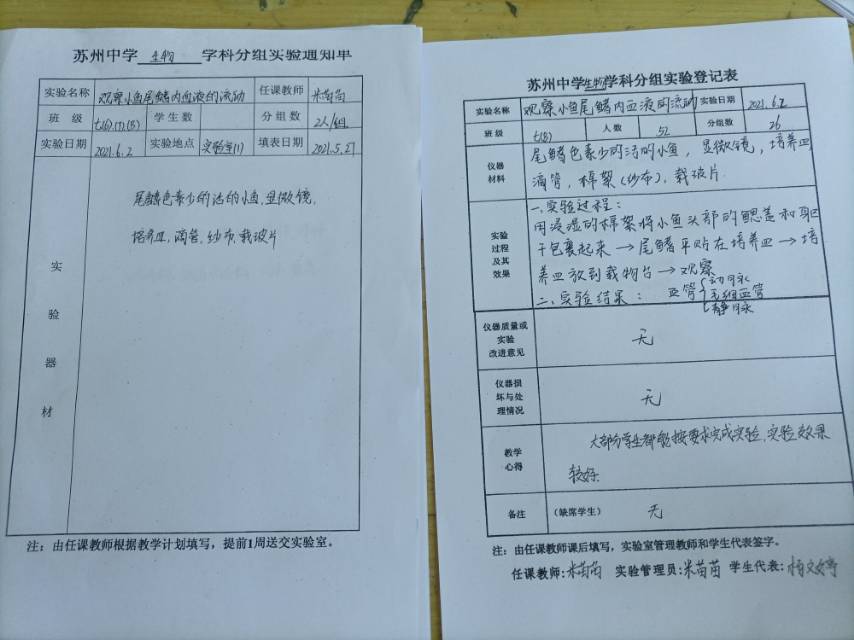 苏州中学 生物 学科分组实验通知单
实验名称 观察小鱼尾鳍内血液的流动 任课教师 米苗苗
班 级 七(6).(7).(8) 学生数 分组数 2人/组
实验日期 2021.6.2 实验地点 实验室(1) 填表日期 2021.5.27
实验器材
尾鳍色素少的活的小鱼,显微镜,
培养皿,滴管,纱布,载玻片
注:由任课教师根据教学计划填写,提前1周送交实验室。
苏州中学生物学科分组实验登记表
实验名称 观察小鱼尾鳍内血液的流动 实验日期 2021.6.2
班 级 七(8) 人 数 52 分组数 26
仪器材料
尾鳍色素少的活的小鱼,显微镜,培养皿
滴管,棉絮(纱布),载玻片
实验过程及其效果
一.实验过程:
用浸湿的棉絮将小鱼头部的鳃盖和躯
干包裹起来→尾鳍平贴在培养皿→培
养皿放到载物台→观察
二、实验结果: 血管{动脉
毛细血管
静脉
仪器质量或实验改进意见 无
仪器损坏与处理情况 无
教学心得
大部分学生都能按要求完成实验,实验效果
较好.
备注 (缺席学生) 无
注:由任课教师课后填写,实验室管理教师和学生代表签字。
任课教师:米苗苗 实验管理员:米苗苗 学生代表: